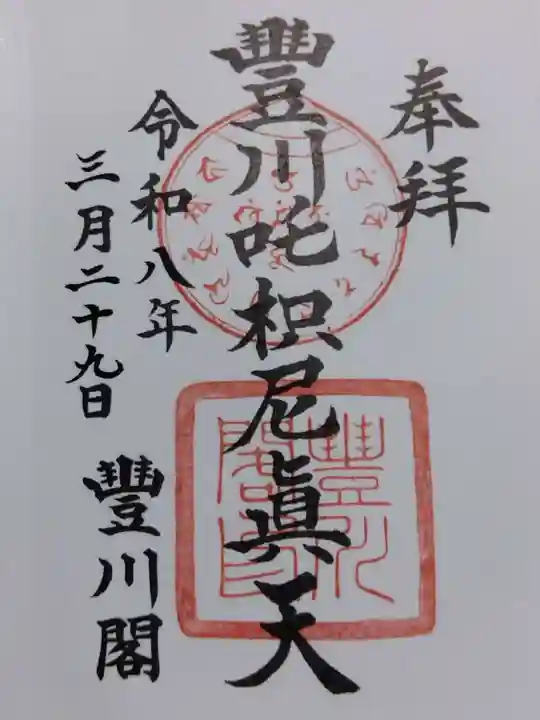 奉拝
豐川吒枳尼眞天
令和八年
三月二十九日
豐川閣
豐川
閣印